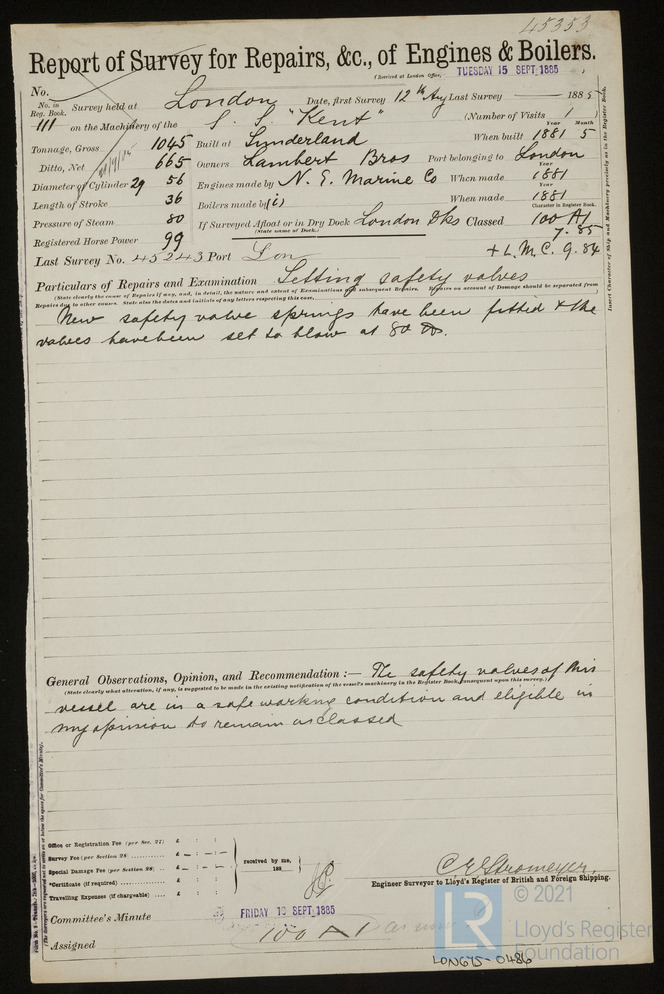 45353
Report of Survey for Repairs, &c., of Engines & Boilers.
(Received at London Office, TUESDAY 15 SEPT 1885
No.
No. in Reg. Book. Survey held at London Date, first Survey 12th Aug Last Survey 1885
111 on the Machinery of the S. S. "Kent" (Number of Visits 1 )
Tonnage, Gross 1045 Built at Sunderland When built 1881 5 Year Month
Ditto, Net 665 Owners Lambert Bros Port belonging to London
Diameter of Cylinder 29 56 Engines made by N. E. Marine Co When made 1881 Year
Length of Stroke 36 Boilers made by (i) When made 1881 Year
Pressure of Steam 80 If Surveyed Afloat or in Dry Dock London Dks Classed 100 A1 Character in Register Book.
(State name of Dock.) 7.85
Registered Horse Power 99
Last Survey No. 45243 Port Lon + L.M.C. 9.84
Particulars of Repairs and Examination Setting safety valves
(State clearly the cause of Repairs if any, and, in detail, the nature and extent of Examinations and subsequent Repairs. Repairs on account of Damage should be separated from
Repairs due to other causes. State also the dates and initials of any letters respecting this case.
New safety valve springs have been fitted & the
valves have been set to blow at 80 lbs.
Insert Character of Ship and Machinery precisely as in the Register Book.
General Observations, Opinion, and Recommendation :— The safety valves of this
(State clearly what alteration, if any, is suggested to be made in the existing notification of the vessel's machinery in the Register Book, consequent upon this survey.)
vessel are in a safe working condition and eligible in
my opinion to remain as classed
Office or Registration Fee (per Sec. 27) £ : :
Survey Fee (per Section 28) £ — : — : —
Special Damage Fee (per Section 28) £ — : — : —
*Certificate (if required) £ : :
Travelling Expenses (if chargeable) £ : :
received by me,
188
C. E. Stromeyer.
Engineer Surveyor to Lloyd's Register of British and Foreign Shipping.
Committee's Minute FRIDAY 19 SEPT 1885
Assigned 100 A1 as now
© 2021
LR
Lloyd's Register
Foundation
LON675-0486